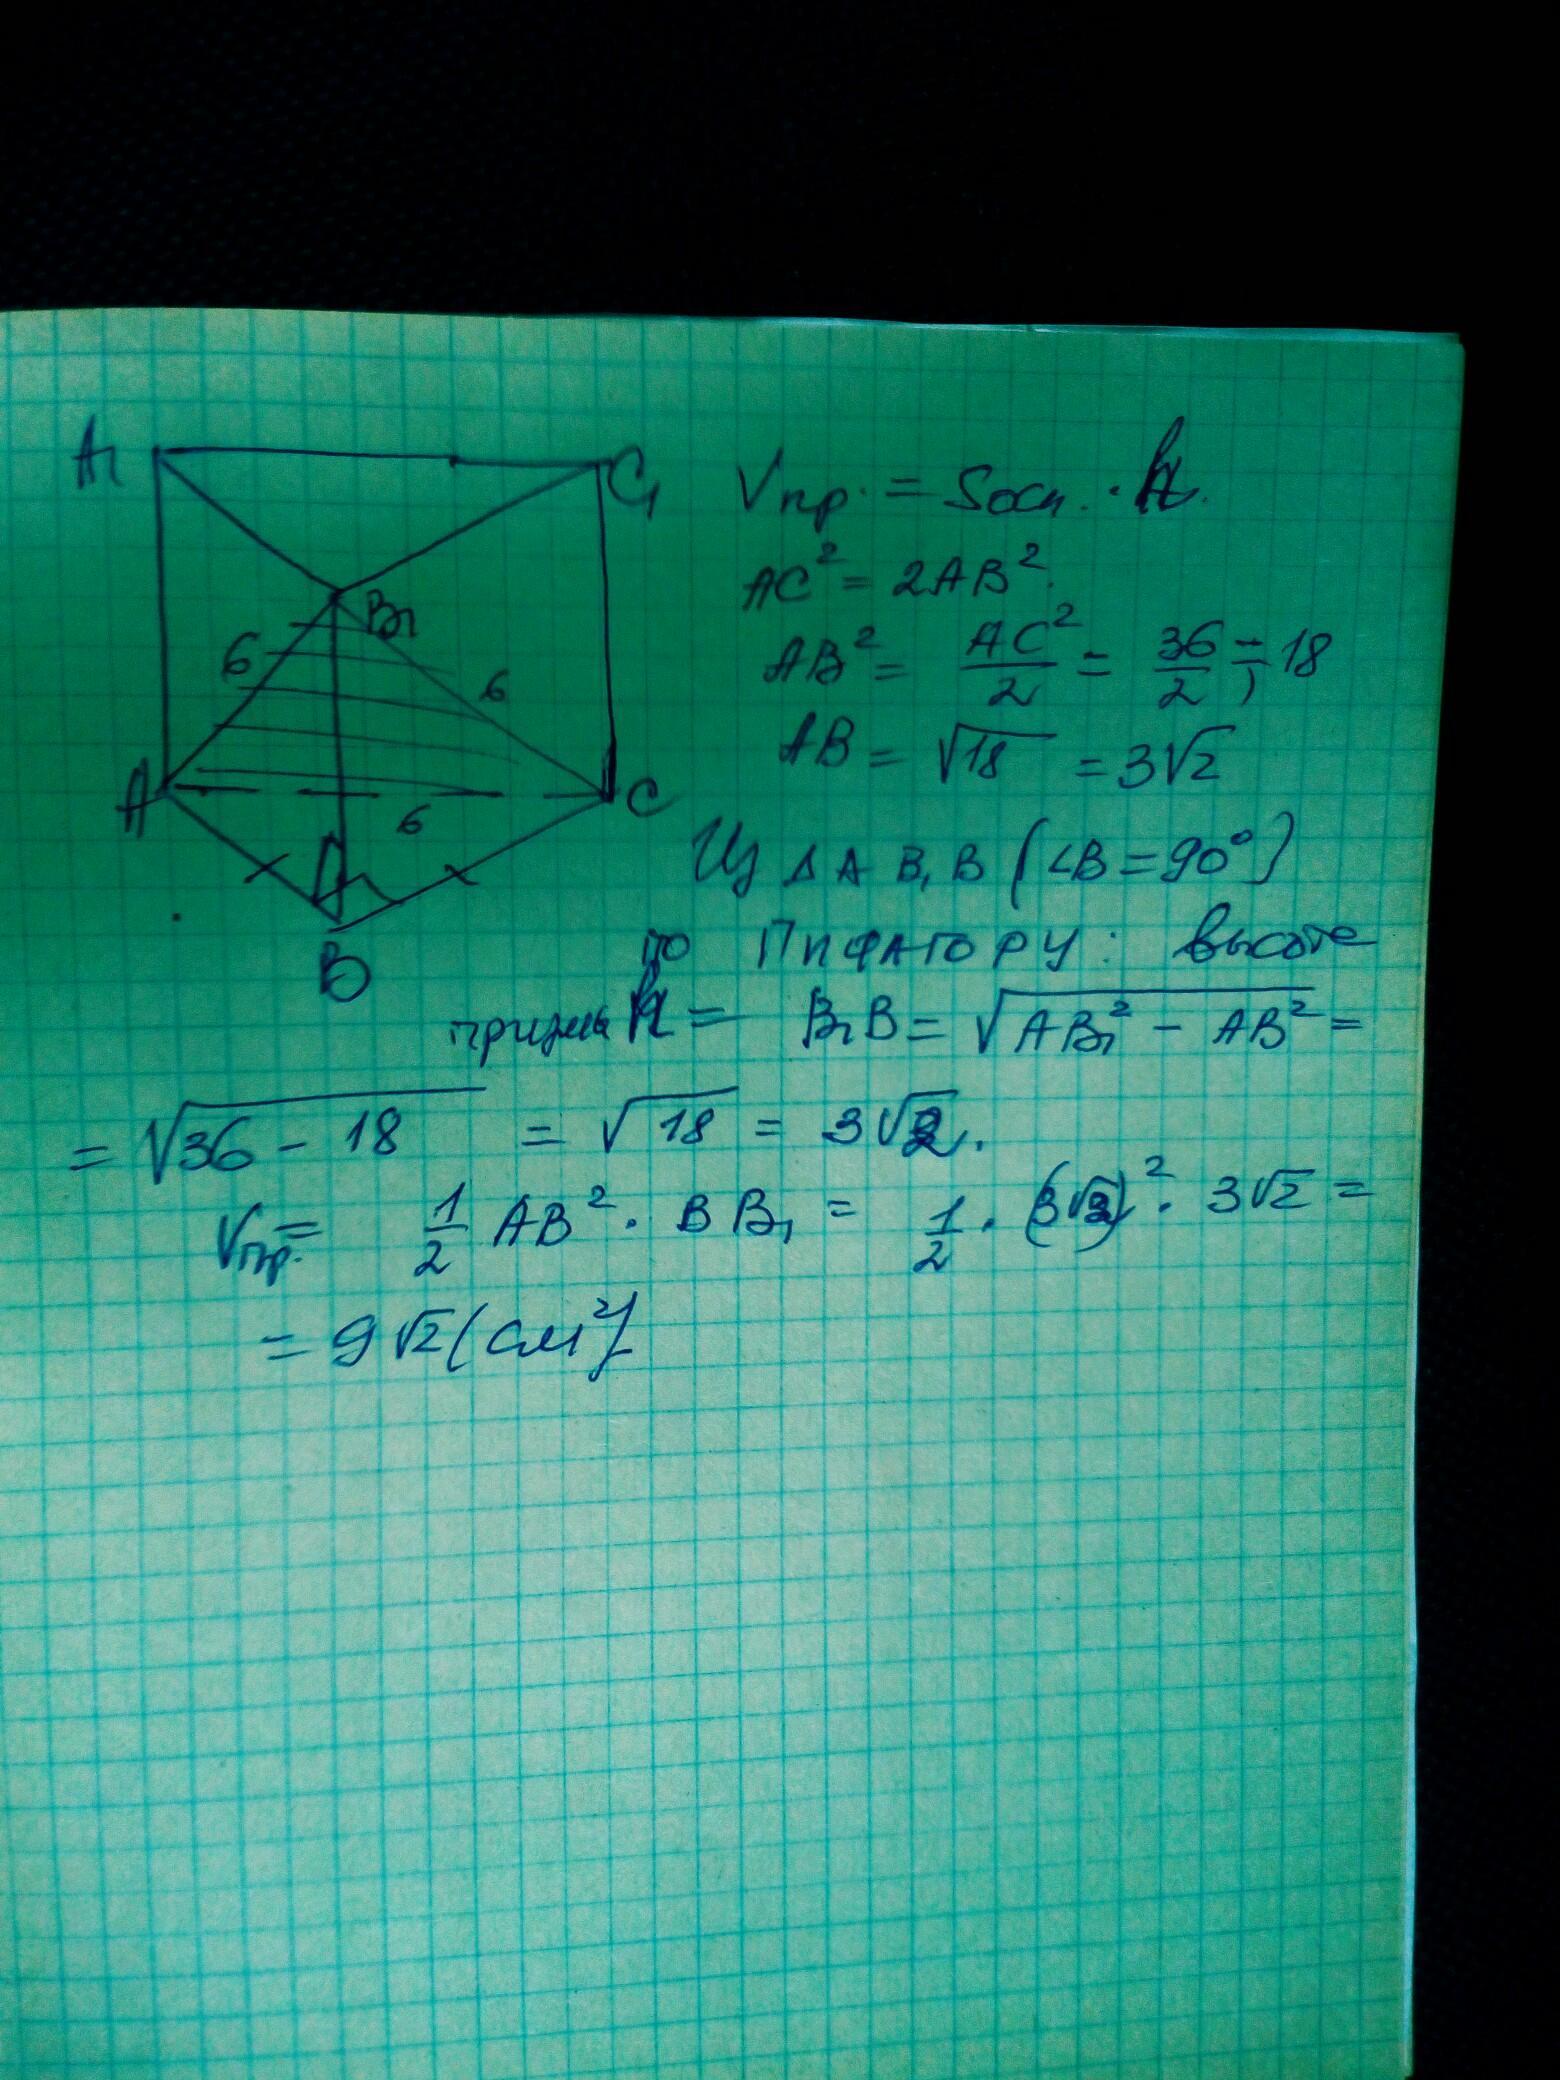 A₁
C₁
B₁
6
6
A
C
6
B
Vпр. = Sосн. · h.
AC² = 2AB².
AB² = AC²/2 = 36/2 = 18
AB = √18 = 3√2
Из Δ A B₁ B (∠B = 90°)
по ПИФАГОРУ: высота
призмы h = B₁B = √(AB₁² − AB²) =
= √(36 − 18) = √18 = 3√2.
Vпр. = 1/2 AB² · BB₁ = 1/2 · (3√2)² · 3√2 =
= 9√2 (см²)